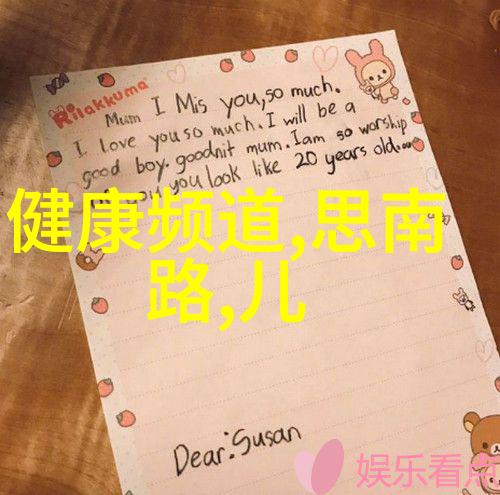 Rilakkuma
Mum I Mis you,so much.
I love you so much. I will be a
good boy. goodnit mum. I am so worship
you look like 20 years old...
健康频道,思南
路,儿
Dear:Susan
娱乐看点